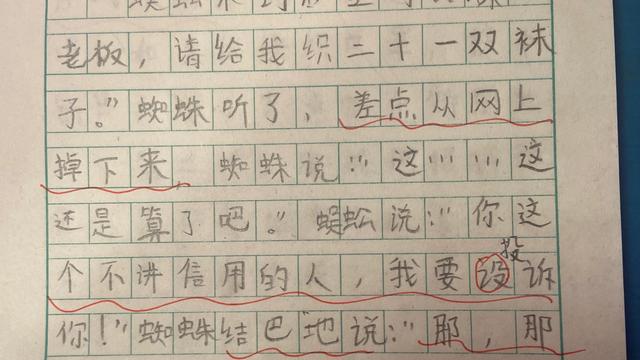 老板，请给我织二十一双袜
子。”蜘蛛听了，差点从网上
掉下来，蜘蛛说：“这……这
还是算了吧。”蜈蚣说：“你这
个不讲信用的人，我要设诉
投
你！”蜘蛛结巴地说：“那，那